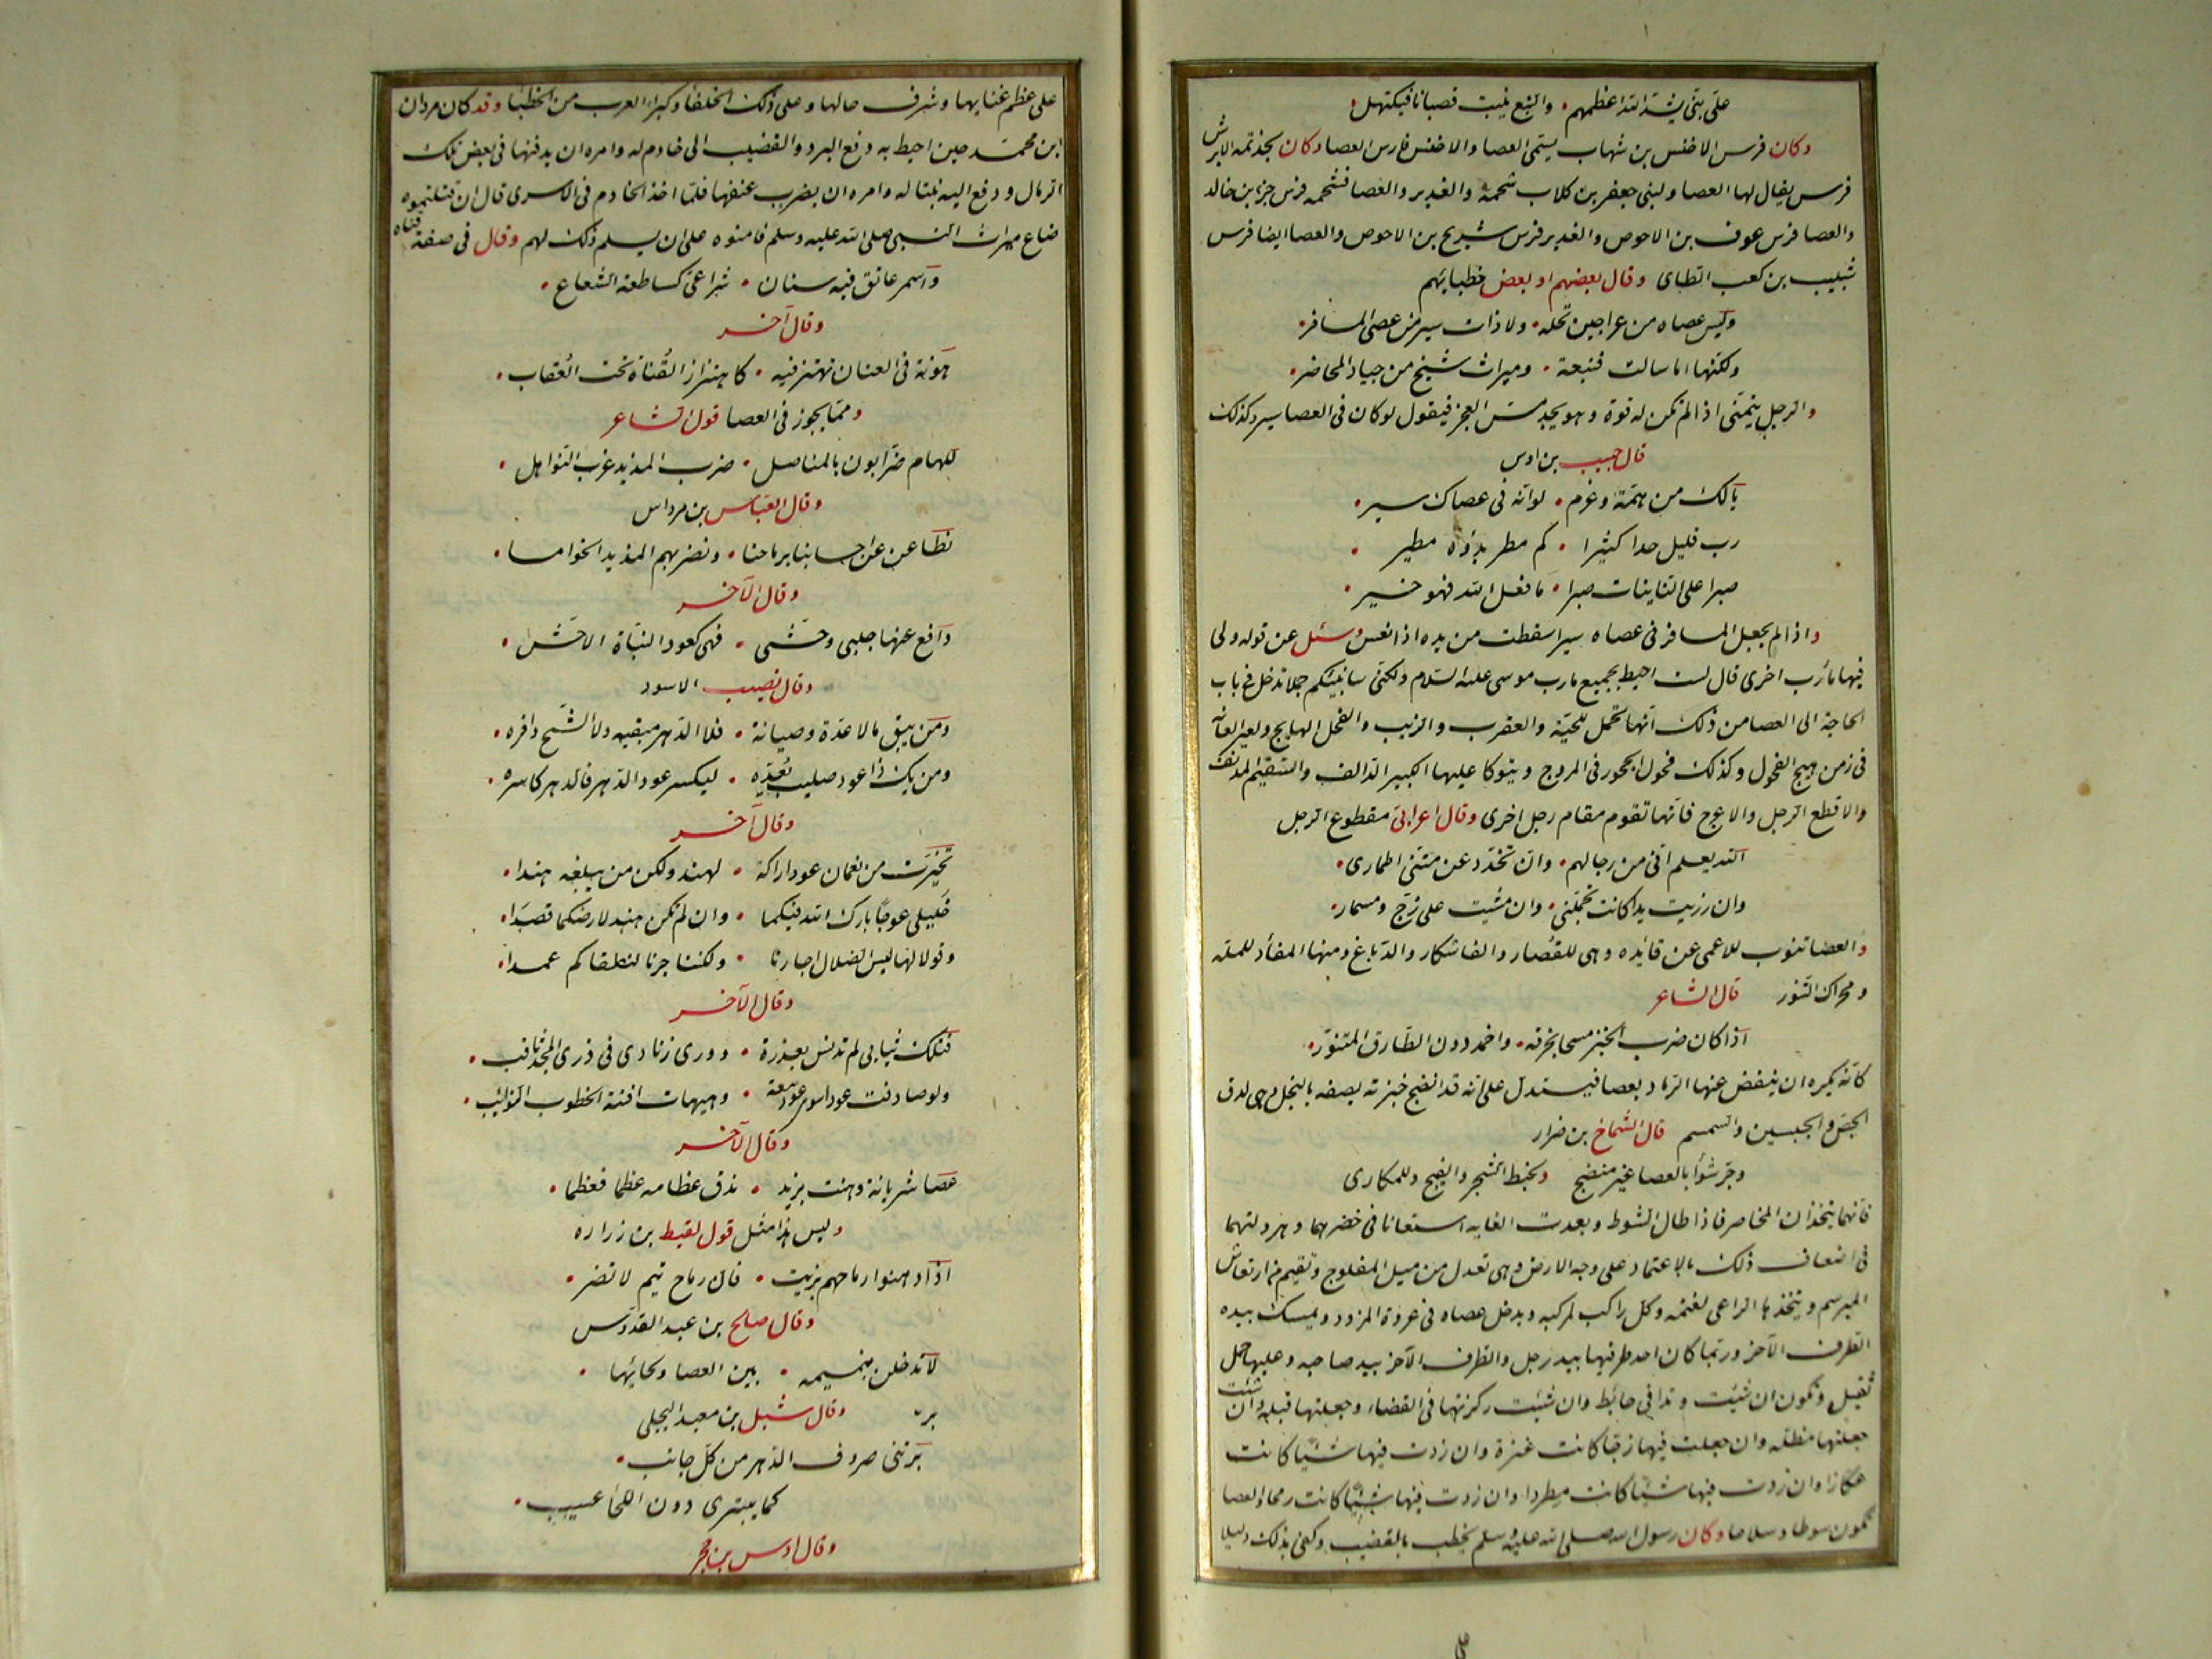 حتى يشد الله اعظمهم والنبع ينبت قضبانا فيكتهل
وكان فرس الاخنس بن شهاب يسمى العصا والاخنس فارس العصا وكان لجذيمة الابرش
فرس يقال لها العصا ولبنى جعفر بن كلاب شحمة والغدير والعصا فشحمه فرس جزء بن خالد
والعصا فرس عوف بن الاحوص والغدير فرس شريح بن الاحوص والعصا ايضا فرس
شبيب بن كعب الطاى وقال بعضهم او بعض خطبائهم
وليس عصاه من عراجين نخله ولا ذات سير من عصى المسافر
ولكنها اما سالت فنبعة وميراث شيخ من جياد المخاصر
والرجل يتمنى اذا لم تكن له قوة وهو يجد مس العجز فيقول لو كان فى العصا سير وكذلك
قال حبيب بن اوس
يا لك من همة وعزم لو انه فى عصاك سير
رب قليل حدا كثيرا كم مطر بدؤه مطير
صبرا على النائبات صبرا ما فعل الله فهو خير
واذا لم يجعل المسافر فى عصاه سيرا سقطت من يده اذا نعس وسئل عن قوله ولى
فيها مآرب اخرى قال لست احيط بجميع مآرب موسى عليه السلام ولكنى سانبئكم جملا تدخل فى باب
الحاجة الى العصا من ذلك انها تحمل للحية والعقرب والذيب والفحل الهايج ولعير العانه
فى زمن هيج الفحول وكذلك فحول الحجور فى المروج ويتوكا عليها الكبير الدالف والسقيم المدنف
والاقطع الرجل والاعرج فانها تقوم مقام رجل اخرى وقال اعرابى مقطوع الرجل
الله يعلم انى من رجالهم وان تخدد عن متنى اطمارى
وان رزيت يدا كانت تجملنى وان مشيت على زج ومسمار
والعصا تنوب للاعمى عن قائده وهى للقصار والفاشكار والدباغ ومنها المفأد للمله
ومحراك التنور قال الشاعر
اذا كان ضرب الخبز مسحا بخرقه واخمد دون الطارق المتنور
كانه يكره ان ينفض عنها الرماد بعصا فيستدل على انه قد انضج خبزته يصفه بالبخل وهى لدق
الجص والجبسين والسمسم قال الشماخ بن ضرار
وجر شواء بالعصا غير منضج ولخبط الشجر والفيج وللمكارى
فانهما يتخذان المخاصر فاذا طال الشوط وبعدت الغايه استعانا فى حضرهما وهرولتهما
فى اضعاف ذلك بالاعتماد على وجه الارض وهى تعدل من ميل المفلوج وتقيم من ارتعاش
المبرسم ويتخذها الراعى لغنمه وكل راكب لمركبه ويدخل عصاه فى عروة المزود ويمسك بيده
الطرف الآخر وربما كان احد طرفيها بيد رجل والطرف الآخر بيد صاحبه وعليها حمل
ثقيل وتكون ان شئت وتدا فى حائط وان شئت ركزتها فى الفضاء وجعلتها قبلة وان شئت
جعلتها مظله وان جعلت فيها زجا كانت عنزة وان زدت فيها شيئا كانت
عكازا وان زدت فيها شيئا كانت مطردا وان زدت فيها شيئا كانت رمحا والعصا
تكون سوطا وسلاحا وكان رسول الله صلى الله عليه وسلم يخطب بالقضيب وكفى بذلك دليلا
على
على عظم غنايها وشرف حالها وعلى ذلك الخلفا وكبراء العرب من الخطبا وقد كان مروان
ابن محمد حين احيط به دفع البرد والقضيب الى خادم له وامره ان يدفنها فى بعض تلك
الرمال ودفع اليه بنتا له وامره ان يضرب عنقها فلما اخذ الخادم فى الاسرى قال ان قتلتموه
ضاع ميراث النبى صلى الله عليه وسلم فامنوه على ان يسلم ذلك لهم وقال فى صفة قناه
واسمر عاتق فيه سنان شراعى كساطعة الشعاع
وقال آخر
هونة فى العنان تهتز فيه كاهتزاز القناة تحت العقاب
ومما يجوز فى العصا قول الشاعر
للهام ضرابون بالمناصل ضرب المذيد غرب النواهل
وقال العباس بن مرداس
نطاعن عن احسابنا برماحنا ونضربهم المذيد الخوامسا
وقال الآخر
دافع عنها جلبى وحشى فهى كعود النباة الاحش
وقال نصيب الاسود
ومن يبق مالا عدة وصيانة فلا الدهر مبقيه ولا الشح وافره
ومن يك ذا عود صليب يعده ليكسر عود الدهر فالدهر كاسره
وقال آخر
تخيرت من نعمان عود اراكة لهند ولكن من يبلغه هندا
خليلى عوجا بارك الله فيكما وان لم تكن هند لارضكما قصدا
وقولا لها ليس الضلال اجارنا ولكننا جرنا لنلقاكم عمدا
وقال الآخر
فتلك ثيابى لم تدنس بغدرة وورى زنادى فى ذرى المجد ثاقب
ولو صادفت عودا سوى عود نبعة وهيهات افنته الخطوب النوائب
وقال الآخر
عصا شريانة دهنت بزيد ندق عظامه عظما فعظما
وليس هذا مثل قول لقيط بن زراره
اذا دهنوا رماحهم بزيت فان رماح تيم لا تضر
وقال صالح بن عبد القدوس
لا تدخلن بنميمه بين العصا ولحائها
وقال شبل بن معبد البجلى
برتنى صروف الدهر من كل جانب
كما يبترى دون اللحا عسيب
وقال اوس بن حجر